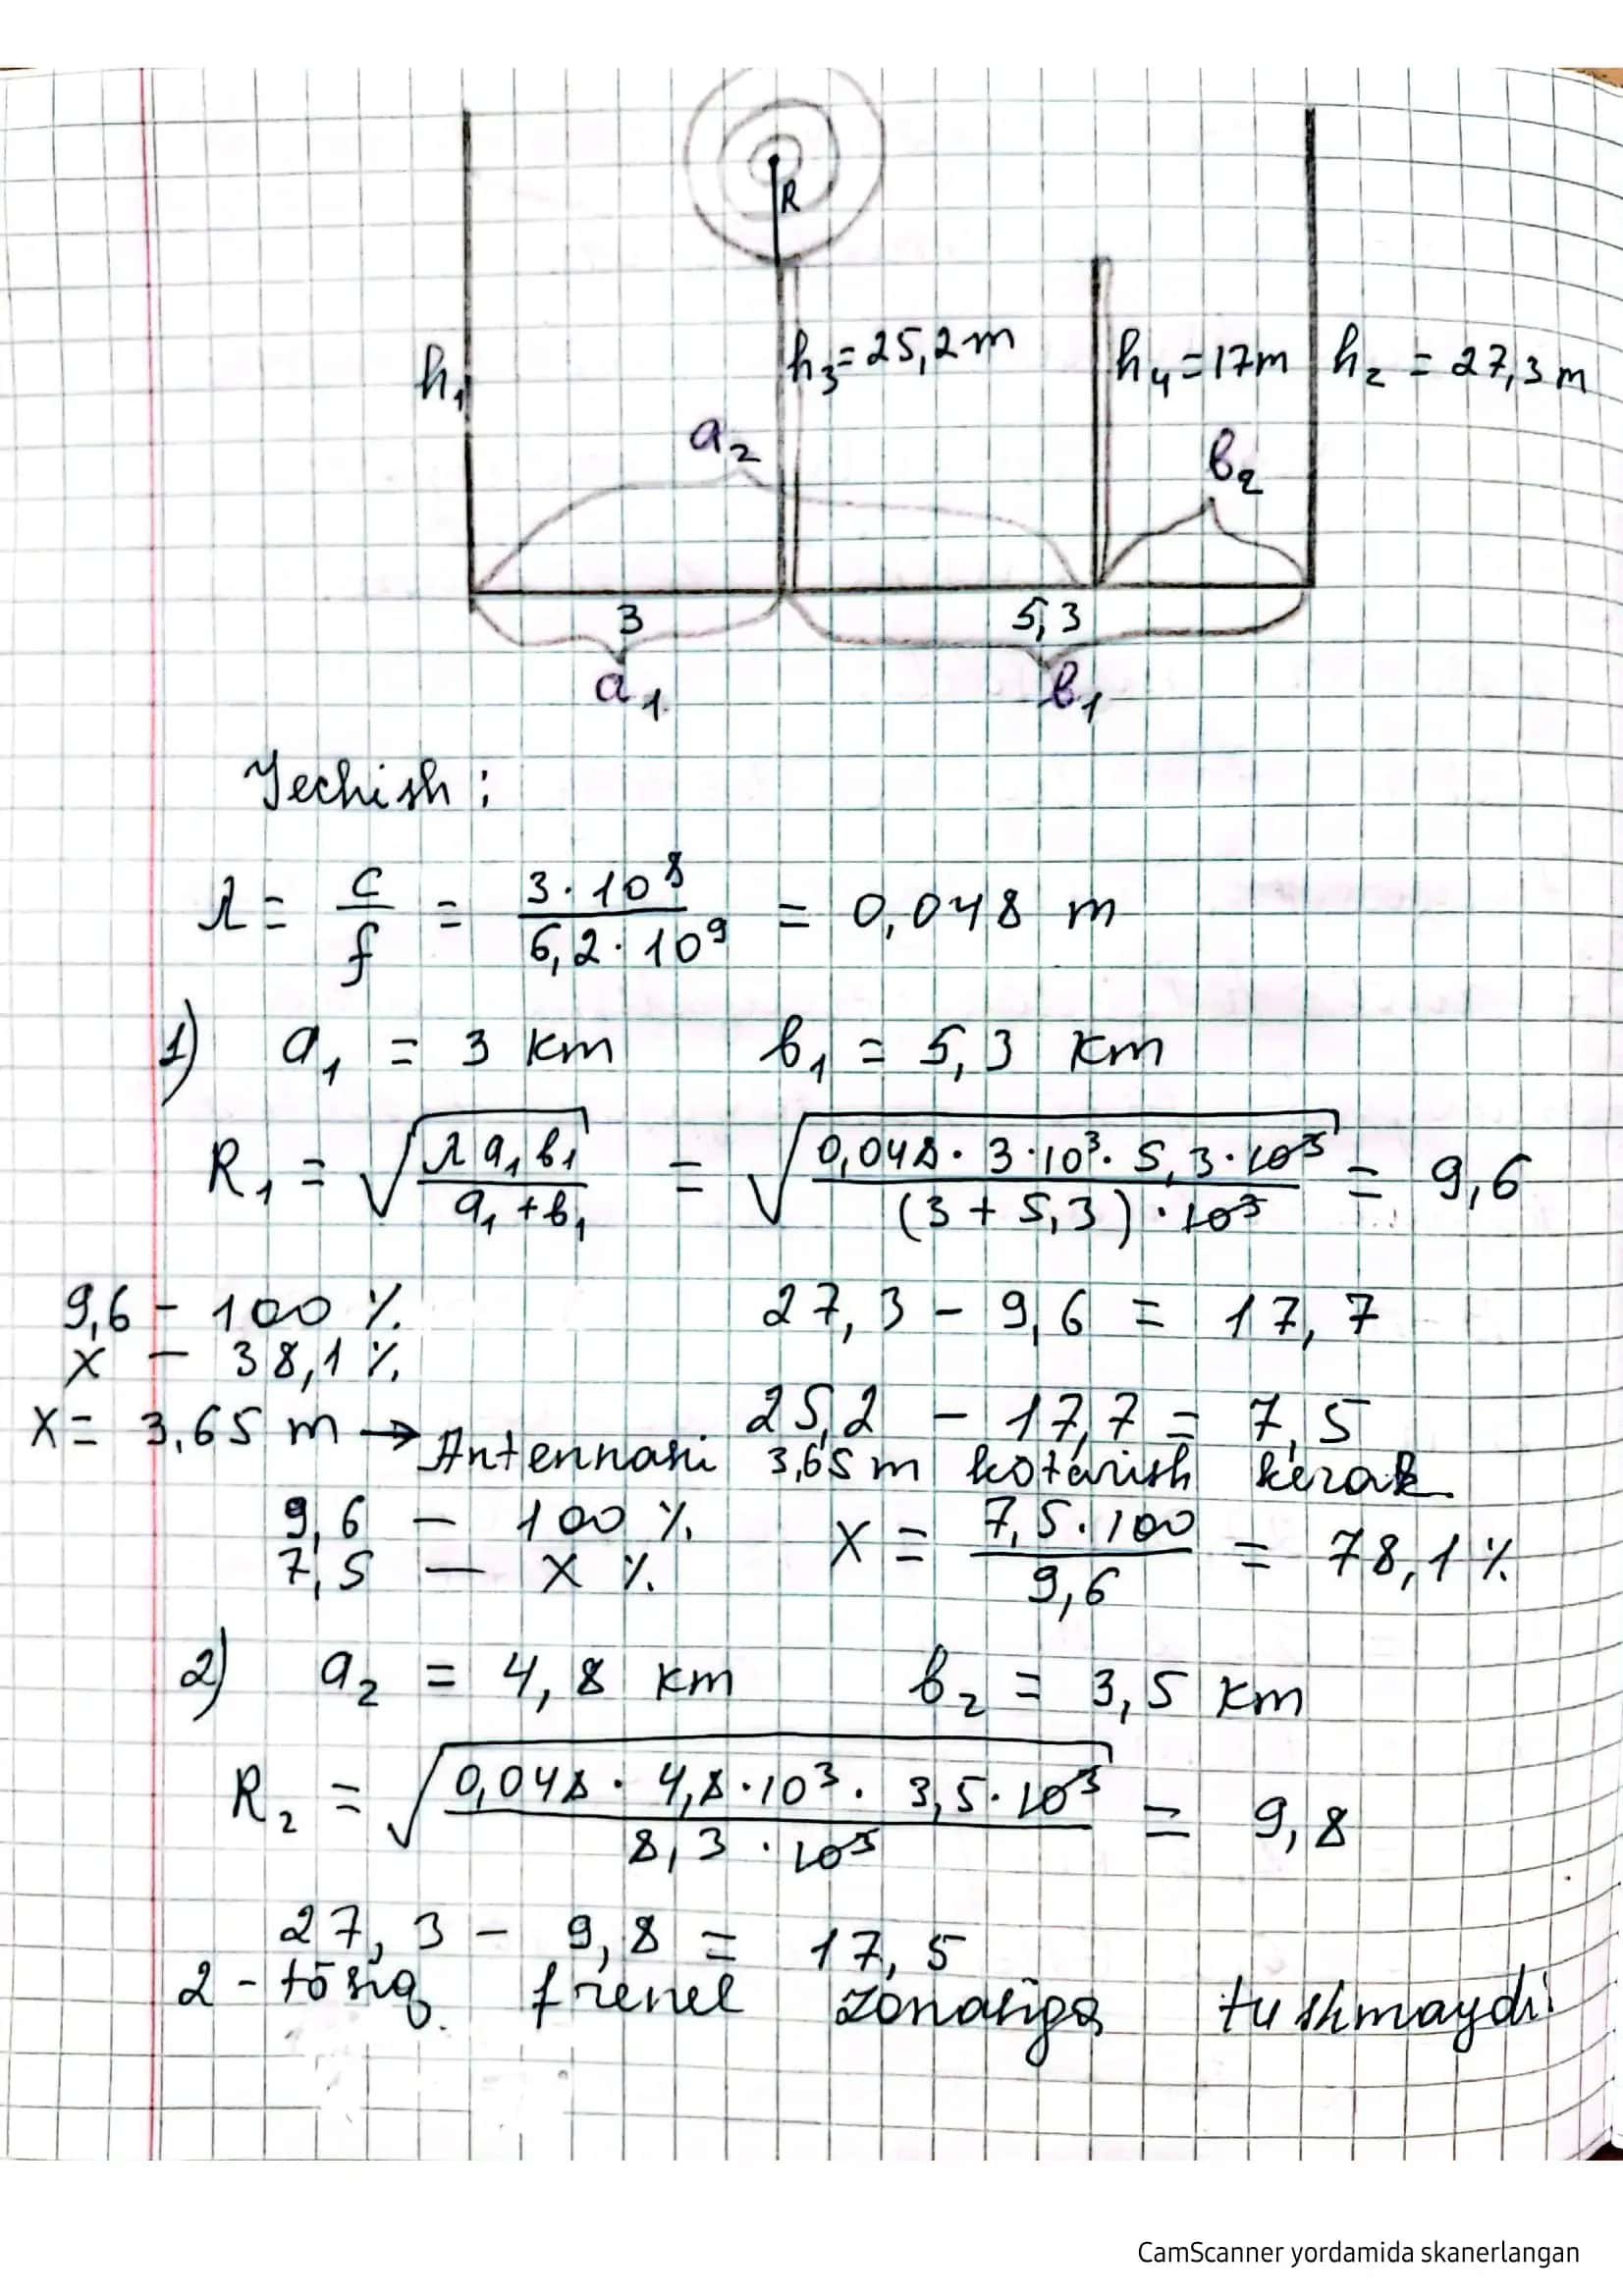 R
h₁
h₃=25,2m
h₄=17m
h₂ = 27,3m
a₂
в₂
3
5,3
a₁
в₁
Yechish:
λ = c/f = 3·10⁸/6,2·10⁹ = 0,048 m
1) a₁ = 3 km в₁ = 5,3 km
R₁ = √(λa₁в₁/a₁+в₁) = √(0,048·3·10³·5,3·10³/(3+5,3)·10³) = 9,6
9,6 – 100 % 27,3 – 9,6 = 17,7
x – 38,1 %
x = 3,65 m → 25,2 – 17,7 = 7,5
Antennani 3,65m kotarish kerak
9,6 – 100 % x = 7,5·100/9,6 = 78,1 %
7,5 – x %
2) a₂ = 4,8 km в₂ = 3,5 km
R₂ = √(0,048·4,8·10³·3,5·10³/8,3·10³) = 9,8
27,3 – 9,8 = 17,5
2-tōsiq frenel zonasiga tushmaydi
CamScanner yordamida skanerlangan